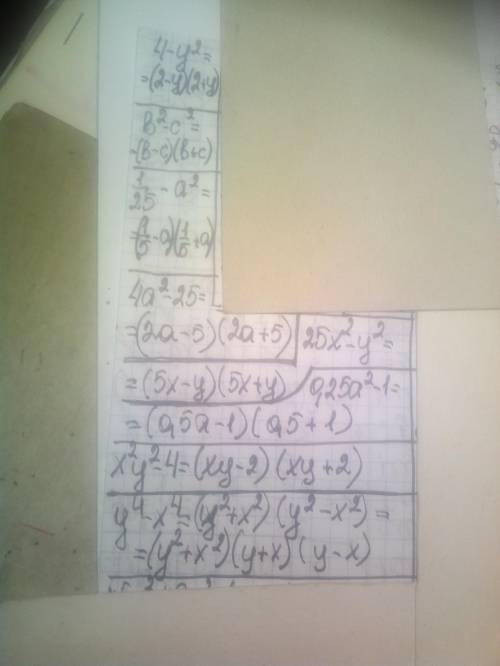 4-y²=
=(2-y)(2+y)
в²-с²=
=(в-с)(в+с)
1/25 - a²=
=(1/5 - a)(1/5 + a)
4a²-25=
=(2a-5)(2a+5)
25x²-y²=
=(5x-y)(5x+y)
0,25a²-1=
=(0,5a-1)(0,5+1)
x²y²-4=(xy-2)(xy+2)
y⁴-x⁴=(y²+x²)(y²-x²)=
=(y²+x²)(y+x)(y-x)